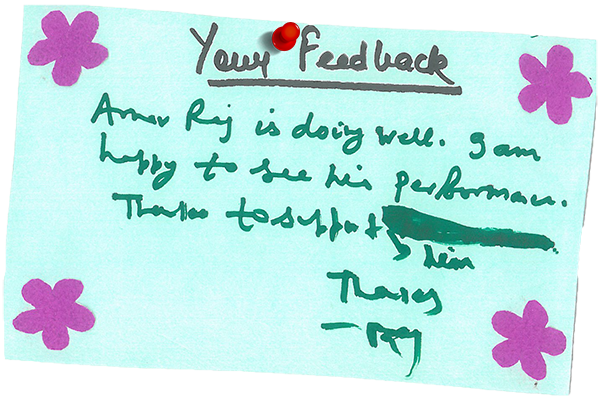 Your Feedback
Arnav Raj is doing well. I am
happy to see his performance.
Thanks to support
him
Thanks
— Raj